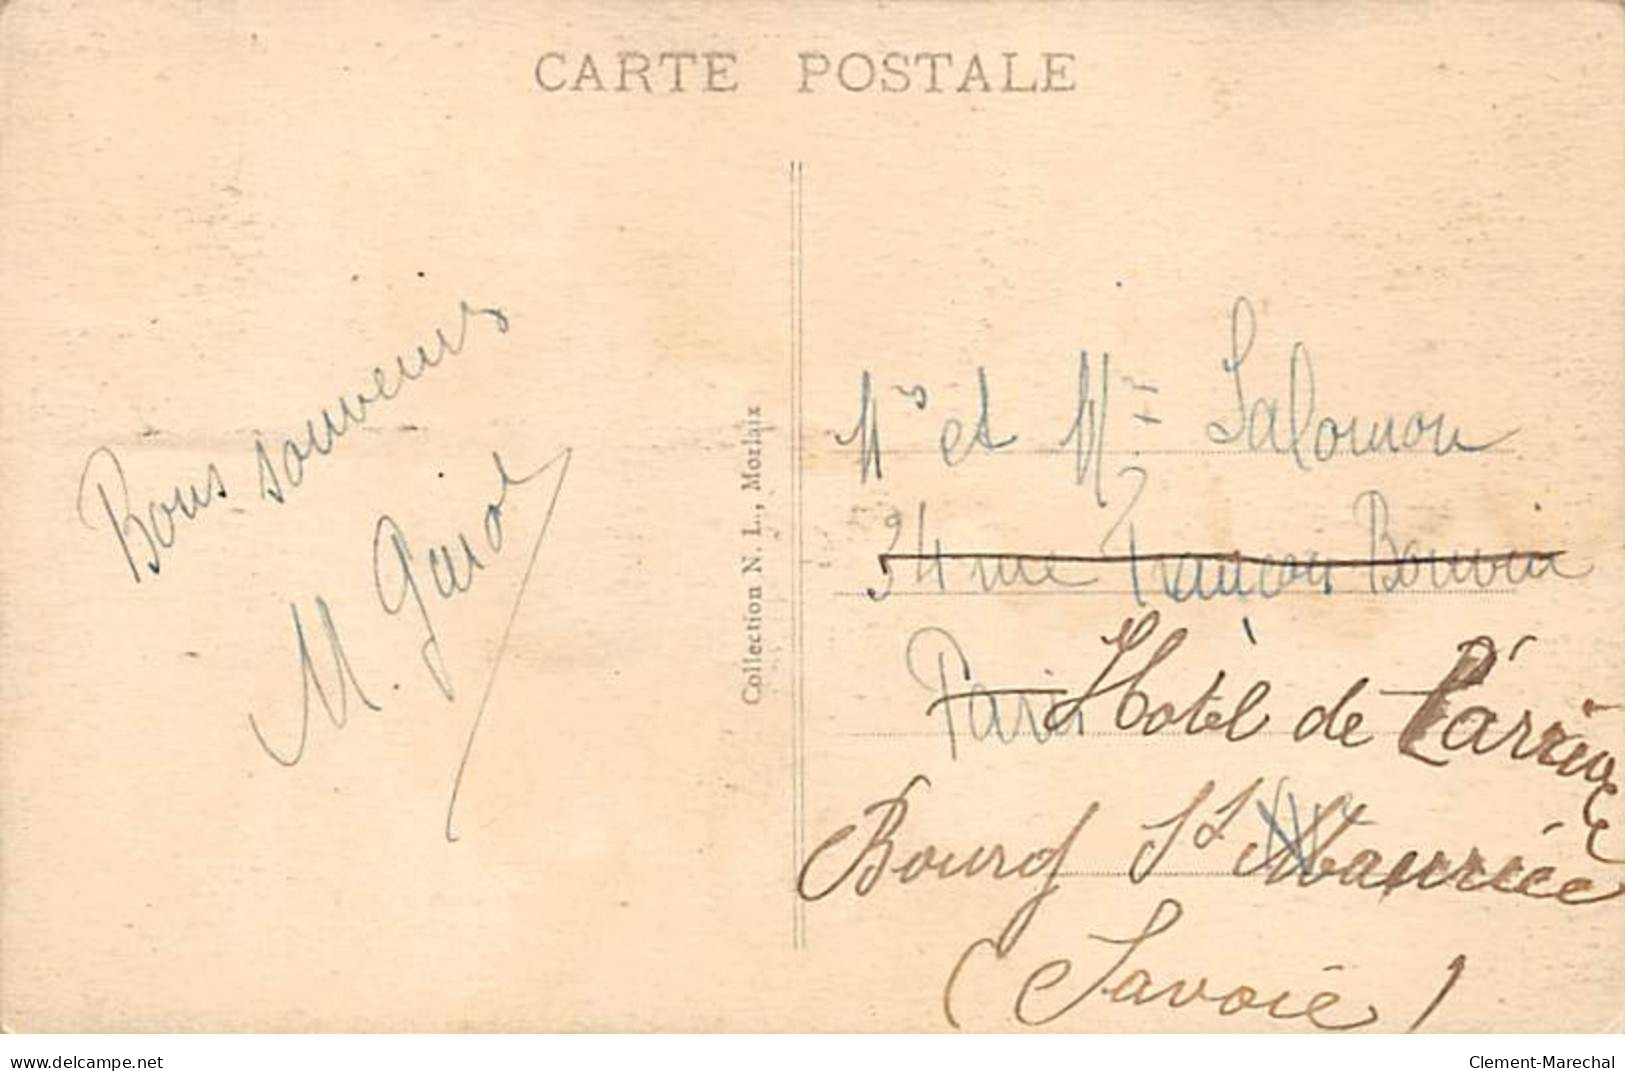 CARTE POSTALE
Bons souvenirs
M.
Collection N. L., Morlaix
Mr et Mme Salomon
34 rue François Bonvin
Paris
Hotel de l'arrivée
Bourg St Maurice
(Savoie)
delcampe.net
Clement-Marechal